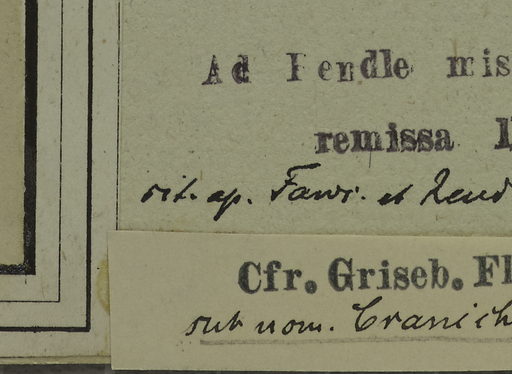 Ad Rendle mis
remissa 1
cit. ap. Fawc. et Rend
Cfr. Griseb. Fl
sub nom. Cranich